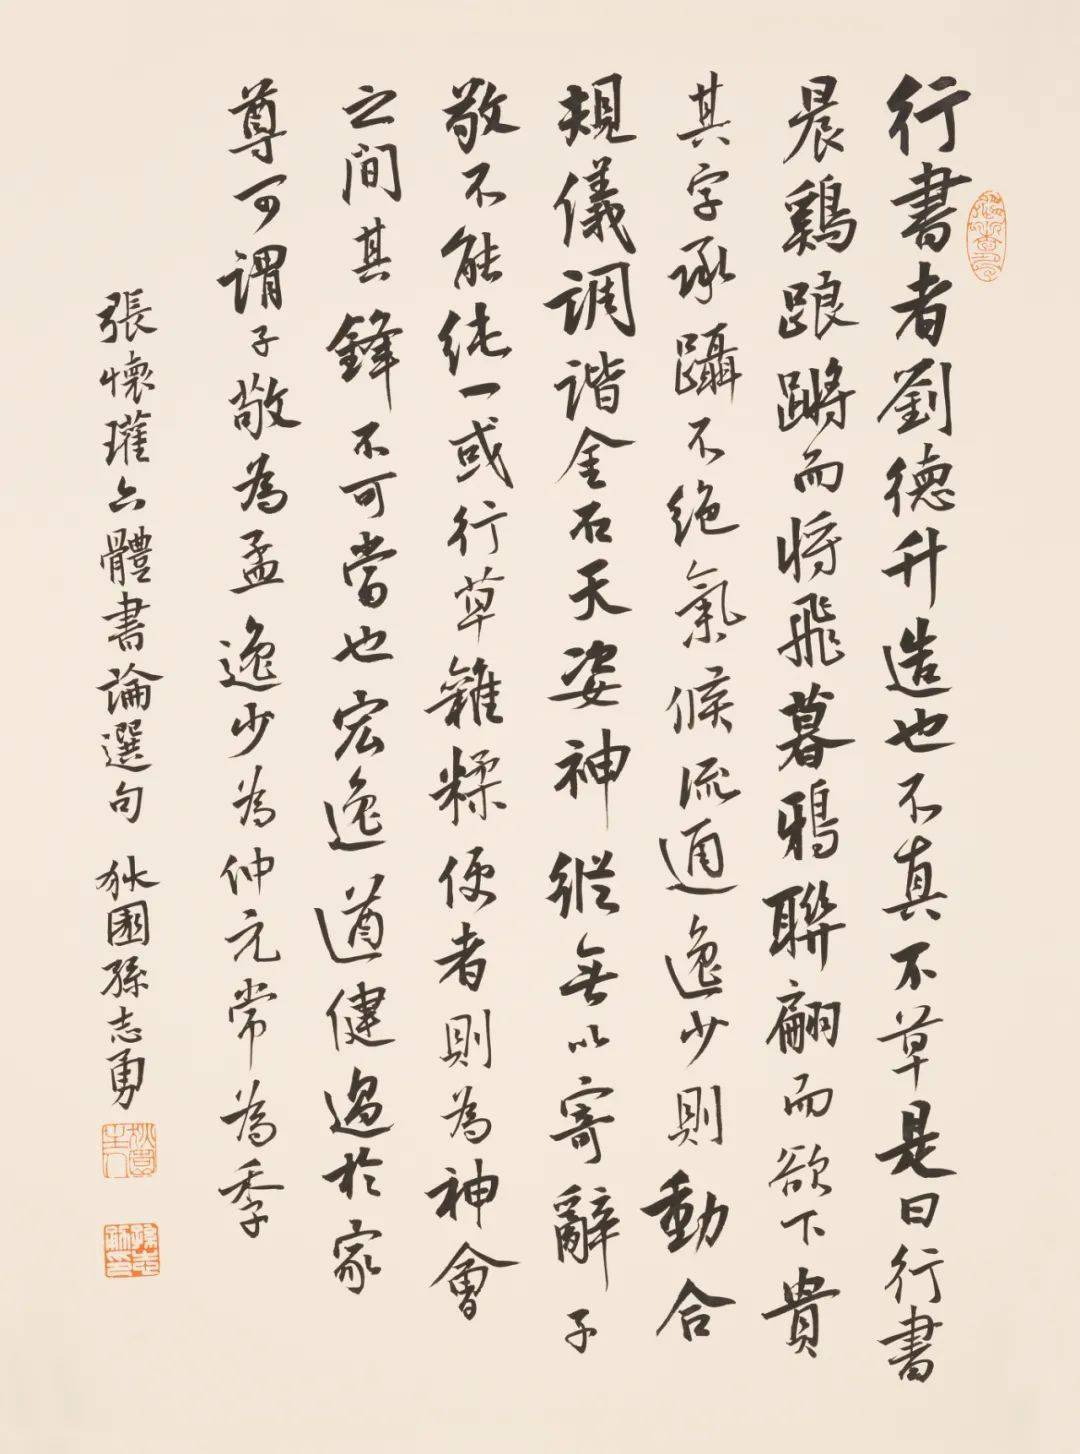 行書者劉德升造也不真不草是曰行書
晨鷄踉蹡而将飛暮鴉聯翩而欲下貴
其字承躡不絶氣候流通逸少則動合
規儀調諧金石天姿神縱無以寄辭子
敬不能純一或行草雜糅便者則為神會
之間其鋒不可當也宏逸遒健過於家
尊可謂子敬為孟逸少為仲元常為季
張懷瓘六體書論選句 狄園孫志勇